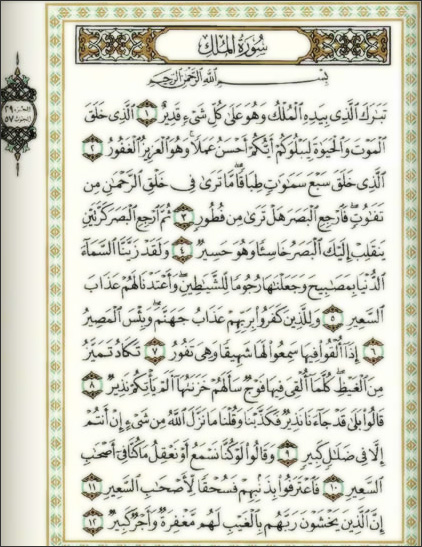 سُورَةُ الْمُلْكِ
الجزء ٢٩
الحزب ٥٧
بِسْمِ اللَّهِ الرَّحْمَٰنِ الرَّحِيمِ
تَبَٰرَكَ ٱلَّذِى بِيَدِهِ ٱلْمُلْكُ وَهُوَ عَلَىٰ كُلِّ شَىْءٍ قَدِيرٌ ١ ٱلَّذِى خَلَقَ
ٱلْمَوْتَ وَٱلْحَيَوٰةَ لِيَبْلُوَكُمْ أَيُّكُمْ أَحْسَنُ عَمَلًا ۚ وَهُوَ ٱلْعَزِيزُ ٱلْغَفُورُ ٢
ٱلَّذِى خَلَقَ سَبْعَ سَمَٰوَٰتٍ طِبَاقًا ۖ مَّا تَرَىٰ فِى خَلْقِ ٱلرَّحْمَٰنِ مِن
تَفَٰوُتٍ ۖ فَٱرْجِعِ ٱلْبَصَرَ هَلْ تَرَىٰ مِن فُطُورٍ ٣ ثُمَّ ٱرْجِعِ ٱلْبَصَرَ كَرَّتَيْنِ
يَنقَلِبْ إِلَيْكَ ٱلْبَصَرُ خَاسِئًا وَهُوَ حَسِيرٌ ٤ وَلَقَدْ زَيَّنَّا ٱلسَّمَآءَ
ٱلدُّنْيَا بِمَصَٰبِيحَ وَجَعَلْنَٰهَا رُجُومًا لِّلشَّيَٰطِينِ ۖ وَأَعْتَدْنَا لَهُمْ عَذَابَ
ٱلسَّعِيرِ ٥ وَلِلَّذِينَ كَفَرُوا۟ بِرَبِّهِمْ عَذَابُ جَهَنَّمَ ۖ وَبِئْسَ ٱلْمَصِيرُ
٦ إِذَآ أُلْقُوا۟ فِيهَا سَمِعُوا۟ لَهَا شَهِيقًا وَهِىَ تَفُورُ ٧ تَكَادُ تَمَيَّزُ
مِنَ ٱلْغَيْظِ ۖ كُلَّمَآ أُلْقِىَ فِيهَا فَوْجٌ سَأَلَهُمْ خَزَنَتُهَآ أَلَمْ يَأْتِكُمْ نَذِيرٌ ٨
قَالُوا۟ بَلَىٰ قَدْ جَآءَنَا نَذِيرٌ فَكَذَّبْنَا وَقُلْنَا مَا نَزَّلَ ٱللَّهُ مِن شَىْءٍ إِنْ أَنتُمْ
إِلَّا فِى ضَلَٰلٍ كَبِيرٍ ٩ وَقَالُوا۟ لَوْ كُنَّا نَسْمَعُ أَوْ نَعْقِلُ مَا كُنَّا فِىٓ أَصْحَٰبِ
ٱلسَّعِيرِ ١٠ فَٱعْتَرَفُوا۟ بِذَنۢبِهِمْ فَسُحْقًا لِّأَصْحَٰبِ ٱلسَّعِيرِ ١١
إِنَّ ٱلَّذِينَ يَخْشَوْنَ رَبَّهُم بِٱلْغَيْبِ لَهُم مَّغْفِرَةٌ وَأَجْرٌ كَبِيرٌ ١٢